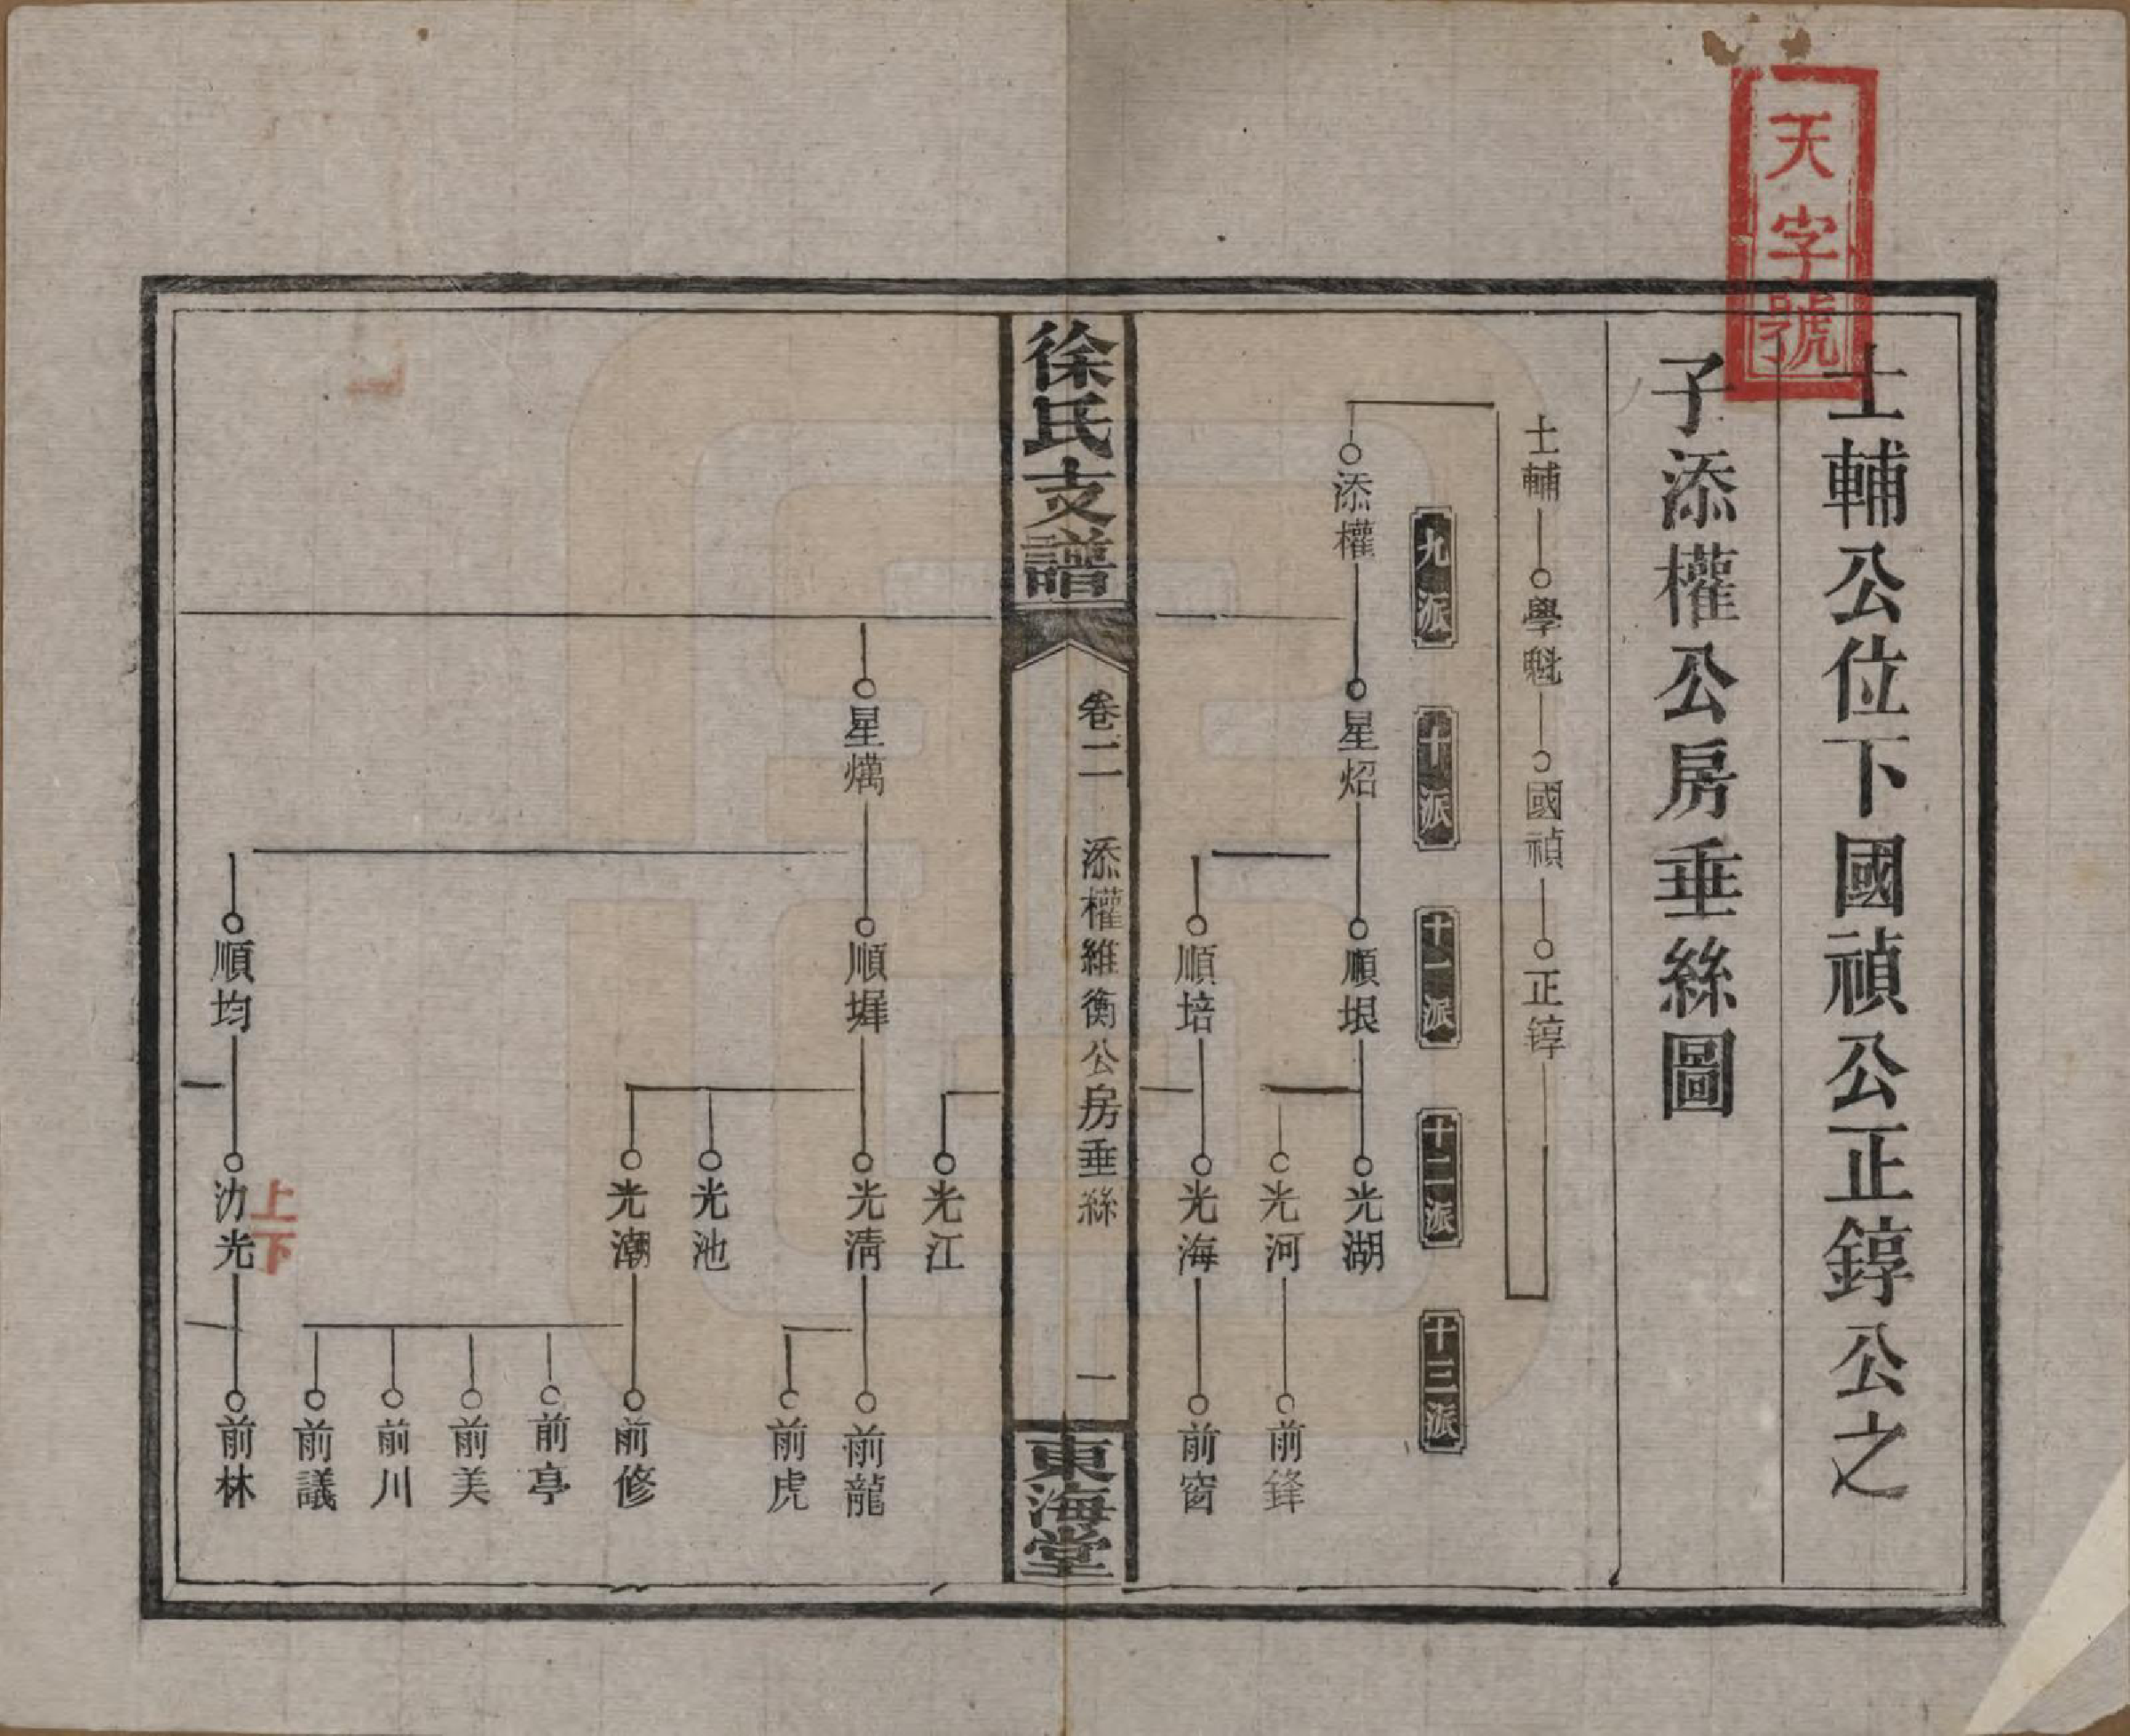 天字號
士輔公位下國禎公正錞公之
子添權公房垂絲圖
士輔 學魁 國禎 正錞
九派 十派 十一派 十二派 十三派
添權 星炤 順垠 光湖
光河 前鋒
順培 光海 前窗
徐氏支譜 卷二 添權維衡公房垂絲 一 東海堂
光江
星爄 順墀 光清 前龍
前虎
光池
光潮 前修
前亭
前美
前川
前議
上下
順均 氻光 前林